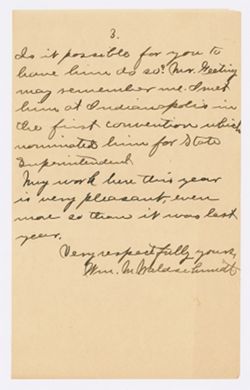 3.
Is it possible for you to
have him do so? Mr. Geeting
may remember me. I met
him at Indianapolis in
the first convention which
nominated him for State
Superintendent.
My work here this year
is very pleasant, even
more so than it was last
year.
Very respectfully yours,
Wm. M. Waldschmidt